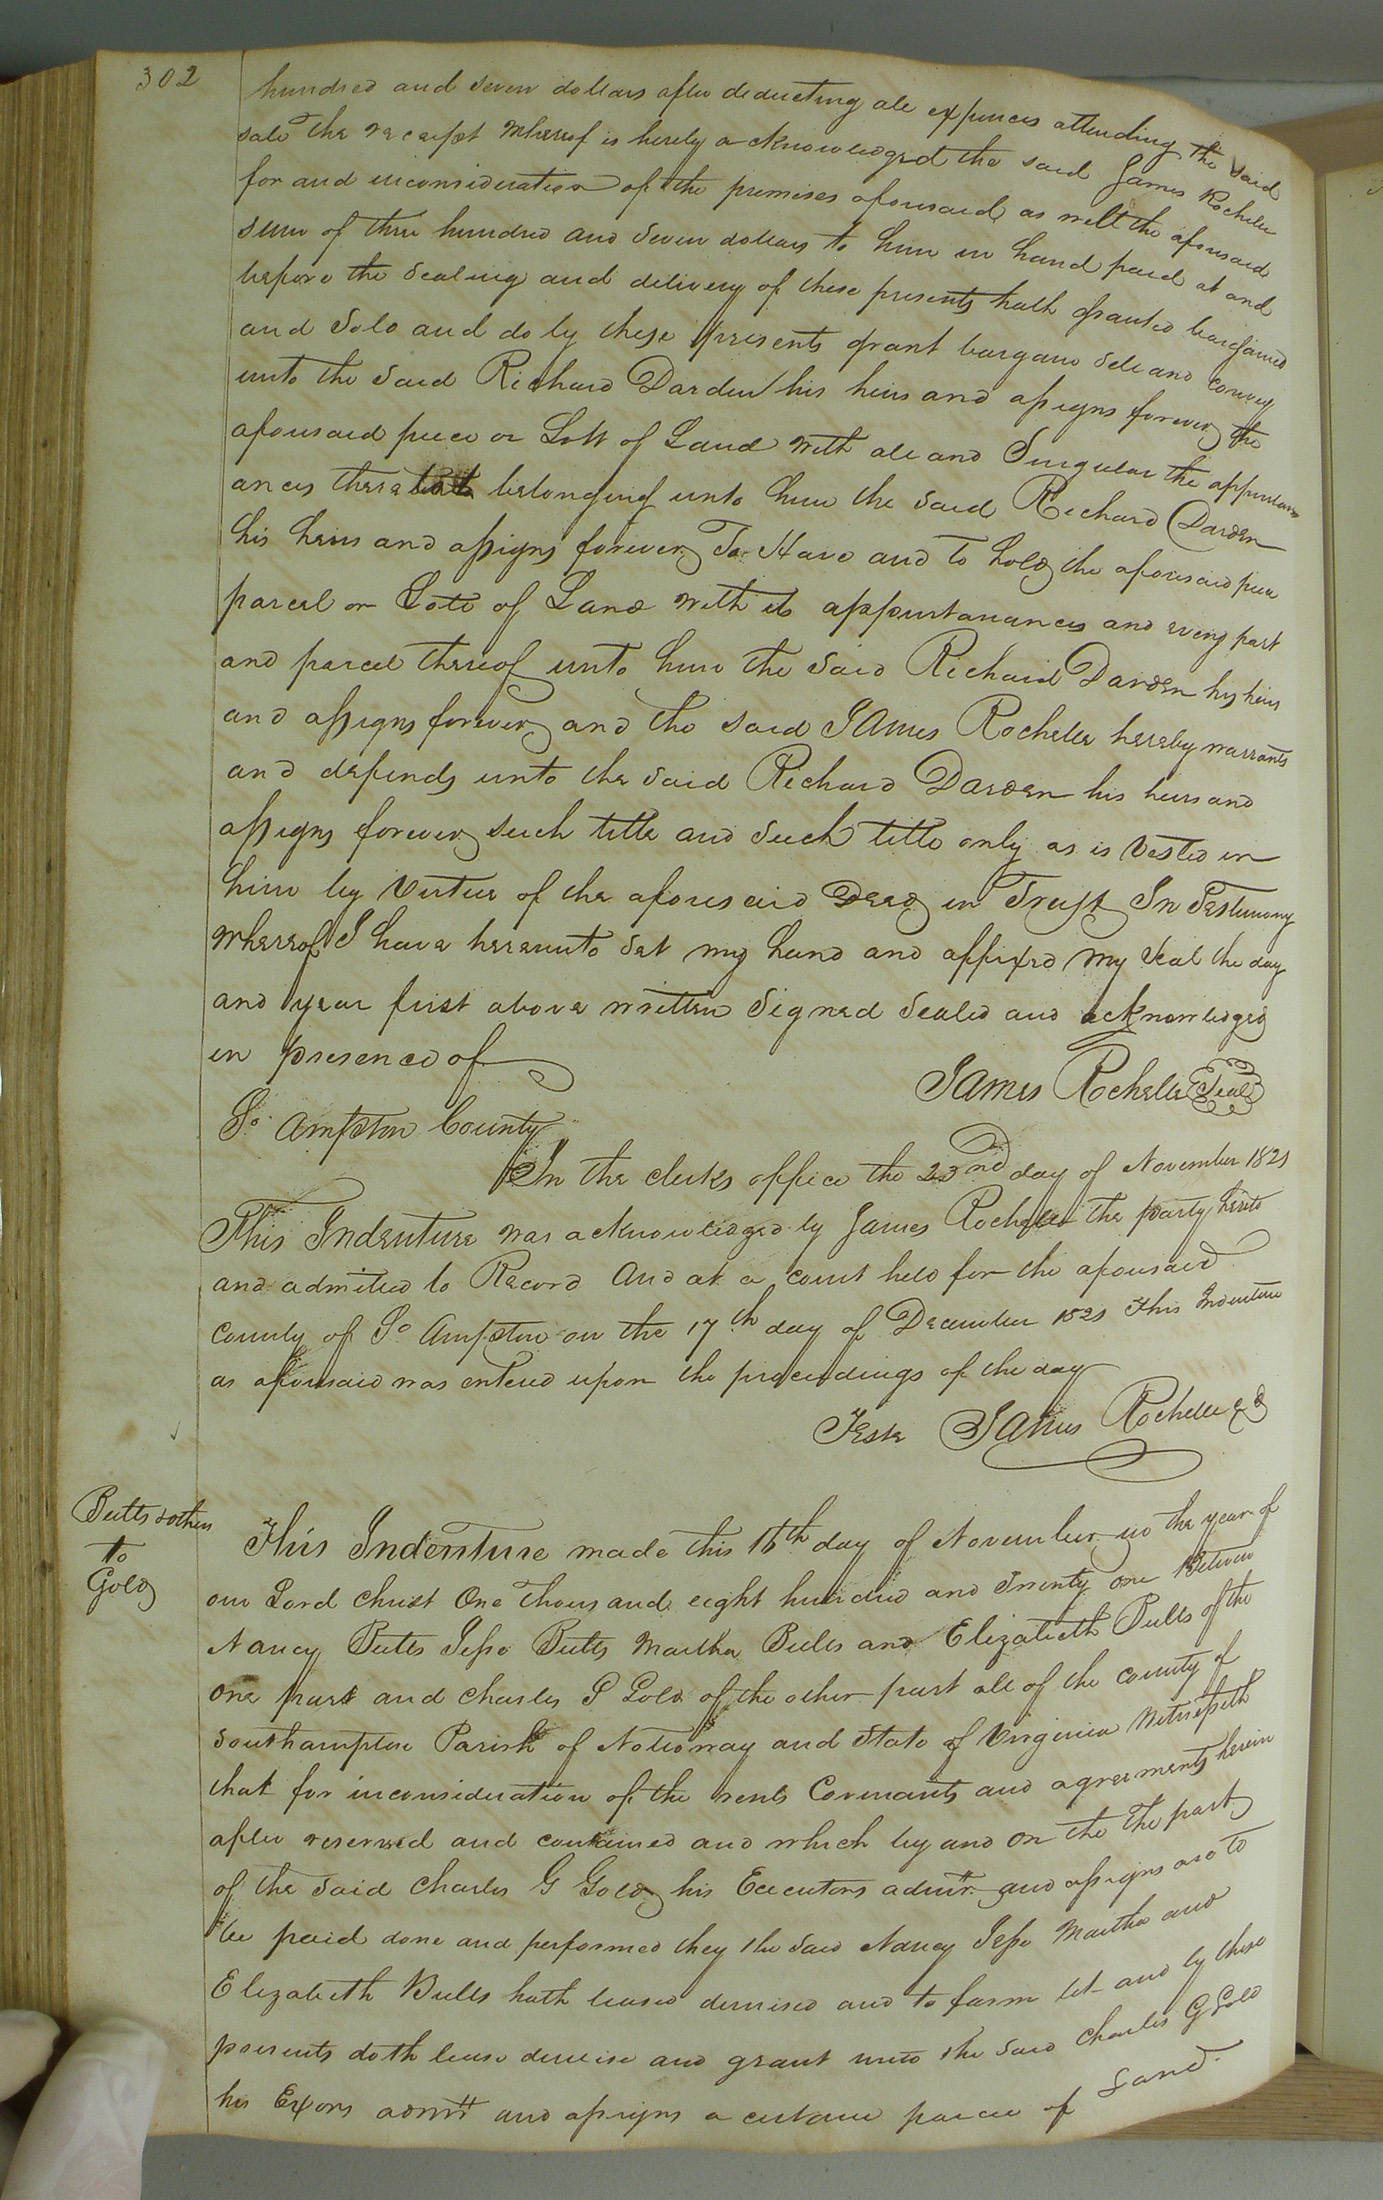 302
hundred and seven dollars after deducting all expences attending the said
sale the receipt whereof is hereby acknowledged the said James Rochelle
for and inconsideration of the premises aforesaid as well the aforesaid
sum of three hundred and seven dollars to him in hand paid at and
before the sealing and delivery of these presents hath granted bargained
and sold and do by these presents grant bargain sell and convey
unto the said Richard Darden his heirs and assigns forever the
aforesaid piece or Lott of Land with all and Singular the appurten
ances there belonging unto him the said Richard Darden
his heirs and assigns forever To Have and to hold the aforesaid piece
parcel or Lott of Land with its appurtanances and every part
and parcel thereof unto him the said Richard Darden his heirs
and assigns forever and the said James Rochelle hereby warrants
and defends unto the said Richard Darden his heirs and
assigns forever such title and such title only as is vested in
him by virtue of the aforesaid Deed in Trust In Testimony
whereof I have hereunto set my hand and affixed my seal the day
and year first above written Signed Sealed and acknowledged
in presence of
James Rochelle Seal
So Ampton County
In the clerks office the 23nd day of November 1821
This Indenture was acknowledged by James Rochelle the party hereto
and admitted to Record And at a court held for the aforesaid
county of So Ampton on the 17th day of December 1821 This Indenture
as aforesaid was entered upon the proceedings of the day
Teste James Rochelle
Butts & others
to
Gold
This Indenture made this 16th day of November in the year of
our Lord christ One Thousand eight hundred and Twenty one Between
Nancy Butts Jesse Butts Martha Butts and Elizabeth Butts of the
one part and Charles G Gold of the other part all of the county of
Southampton Parish of Nottoway and State of Virginia Witnesseth
that for inconsideration of the rents Covenants and agreements herein
after reserved and contained and which by and on the the part
of the said Charles G Gold his Executors admtr and assigns are to
be paid done and performed they the said Nancy Jesse Martha and
Elizabeth Butts hath leased demised and to farm let and by these
presents doth lease demise and grant unto the said Charles G Gold
his Exors admtr and assigns a certain parcel of Land